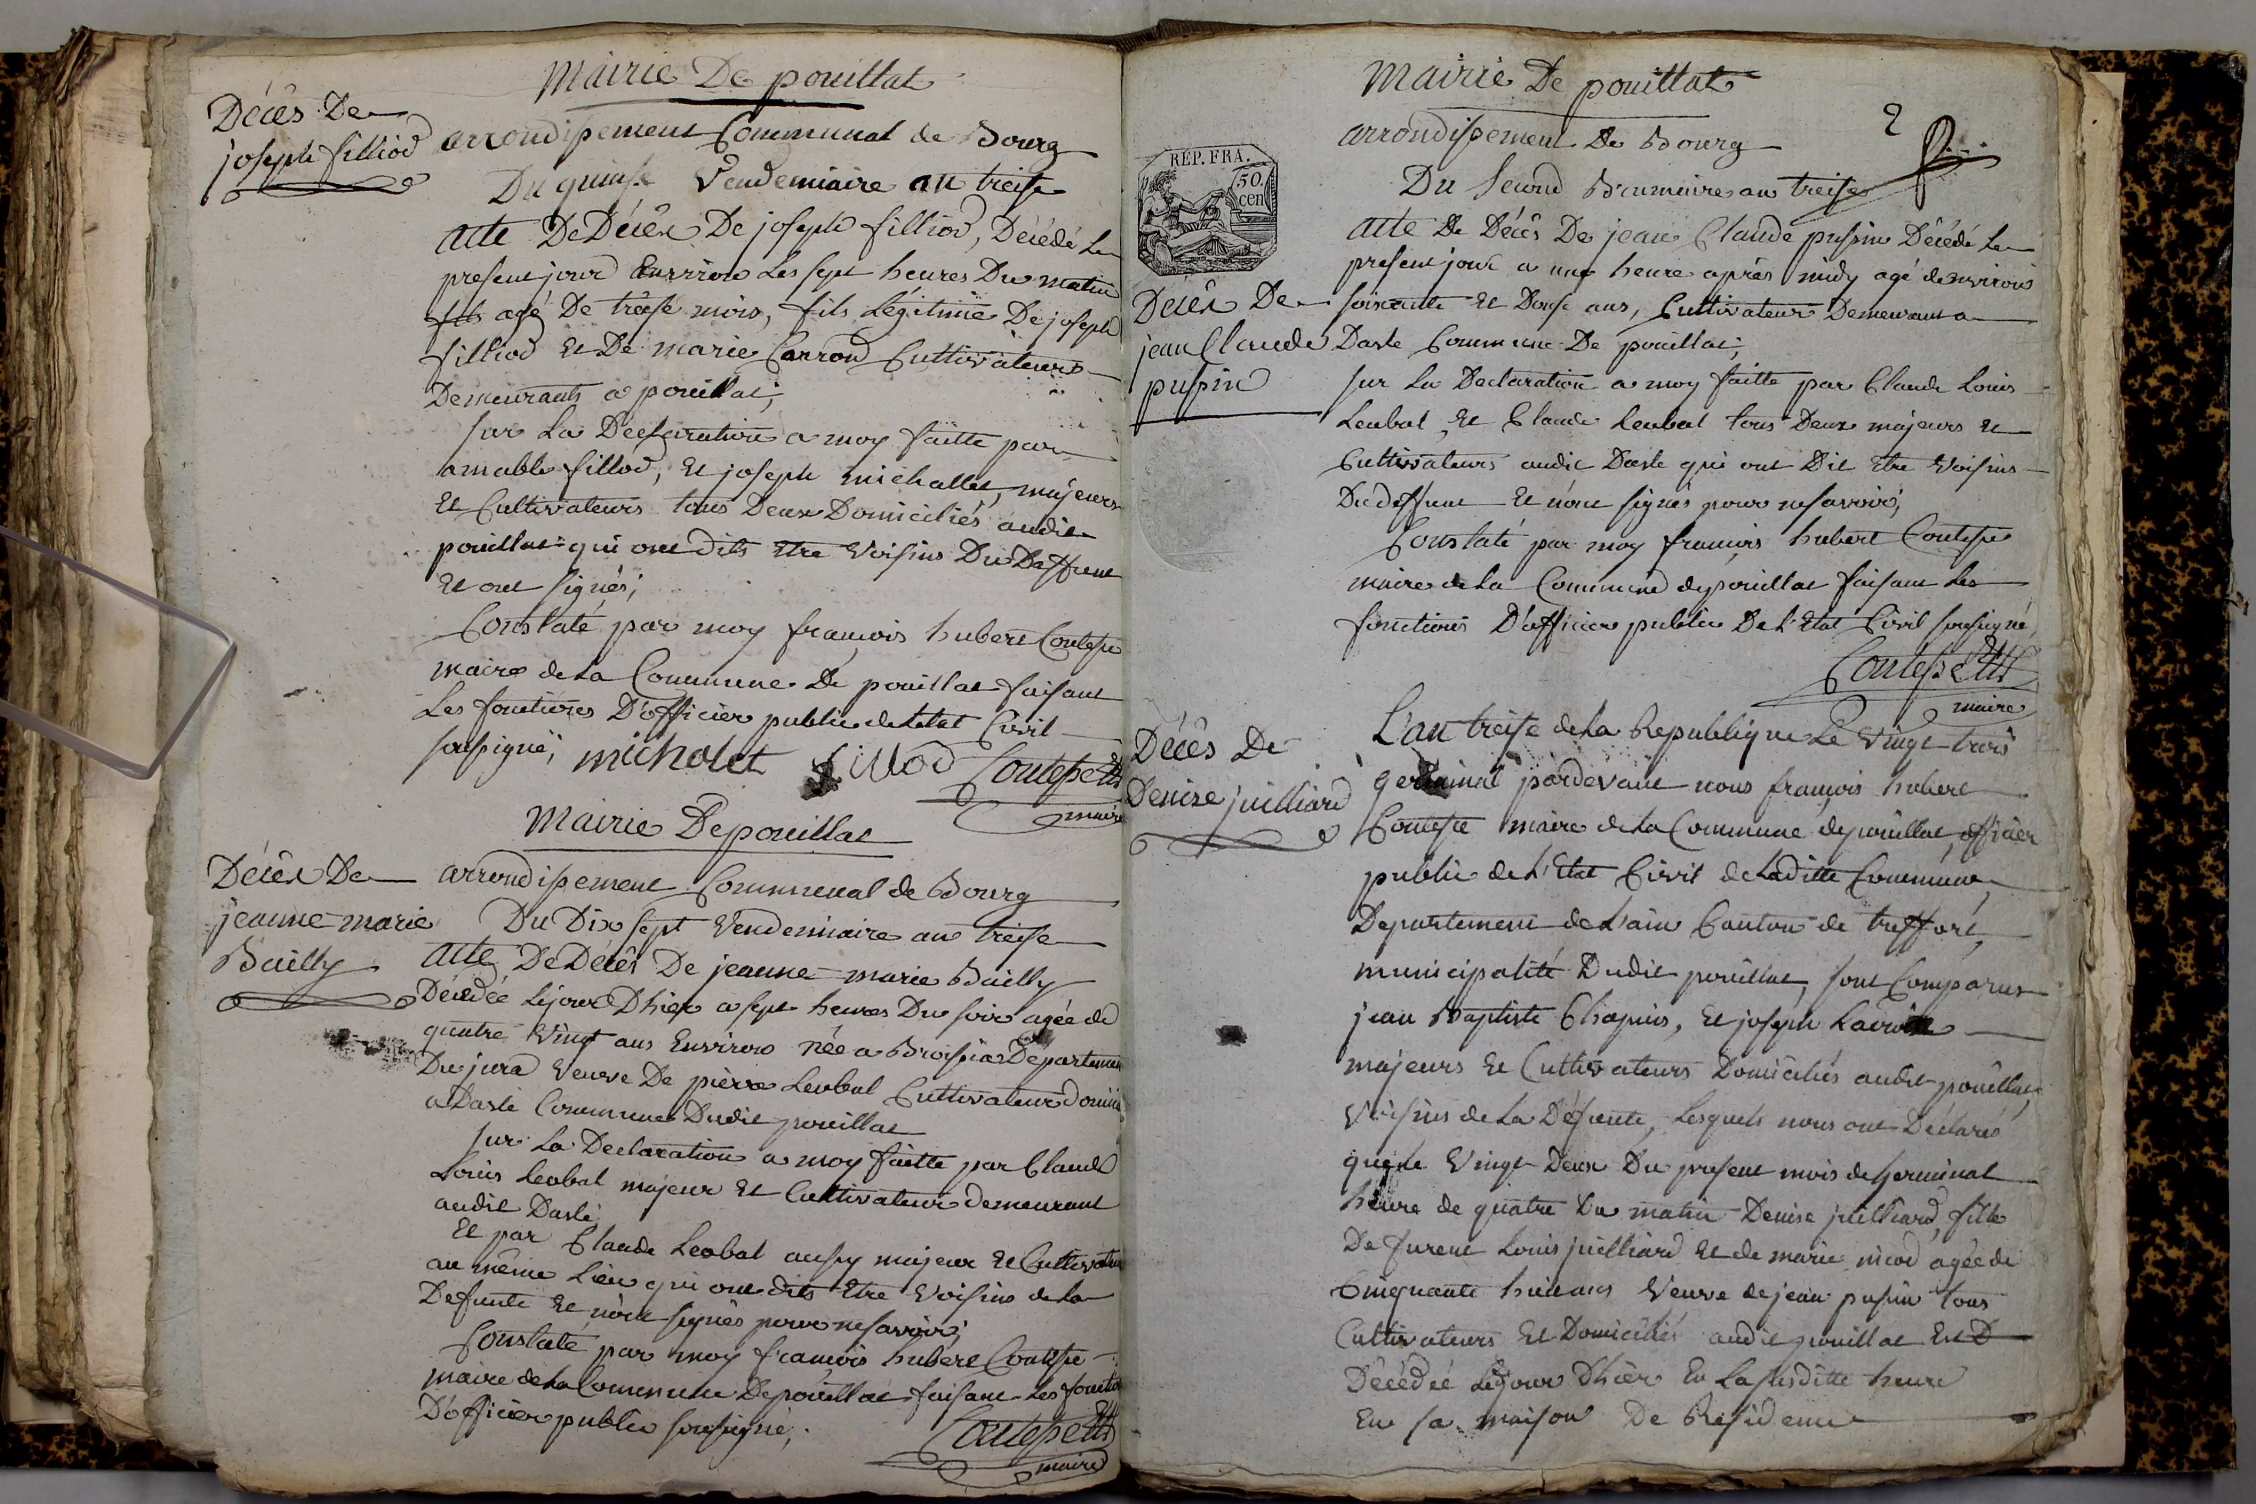 Mairie De pouillat
Décês De
joseph filliod
arrondissement Communal de Bourg
Du quinse Vendemiaire an treise
Acte De Décês De joseph filliod, Décédé Le
present jour Environ Les sept heures Du matin
fils agé De treise mois, fils Légitime De joseph
filliod Et De marie Carrond Cultivateurs
Demeurants a pouillat;
sur La Déclaration a moy faitte par
amable fillod, Et joseph michallet, majeurs
Et Cultivateurs tous Deux Domiciliés audit
pouillat qui ont dits Etre Voisins Du Deffunt
Et ont signés;
Constaté par moy francois hubert Contesse
maire de La Commune De pouillat faisant
Les fonctions D'officier public de Letat Civil
soussigné; micholet fillod Contesse
maire
Mairie De pouillat
Décês De
jeanne-marie
Bailly
arrondissement Communal de Bourg
Du Dix sept Vendemiaire an treise
Acte De Décês De jeanne-marie Bailly
Décédée Le jour D'hier a sept heures Du soir agée de
quatre Vingt ans Environ née a Broissia Departement
Du jura Veuve De pierre Leobal Cultivateur
a Dasle Commune Dudit pouillat
sur La Declaration a moy faitte par Claude
Louis Leobal majeur Et Cultivateur demeurant
audit Dasle
Et par Claude Leobal aussy majeur Et Cultivateur
au même Lieu qui ont dits Etre Voisins de La
Defunte Et n'ont signés pour ne savoir;
Constaté par moy francois hubert Contesse
maire de La Commune De pouillat faisant Les fonctions
D'officier public soussigné;
Contesse
maire
Mairie De pouillat
2
arrondissement De Bourg
RÉP. FRA.
50.
cen
Du second Brumaire an treise
Acte De Décês De jean Claude pussin Décédé Le
present jour a une heure après midy agé denviron
soixante Et Douse ans, Cultivateur Demeurant a
Décês De
jean Claude
pussin
Dasle Commune De pouillat;
sur La Declaration a moy faitte par Claude Louis
Leobal, Et Claude Leobal tous Deux majeurs Et
Cultivateurs audit Dasle qui ont Dit Etre Voisins
Du deffunt Et n'ont signés pour ne savoir;
Constaté par moy francois hubert Contesse
maire de La Commune de pouillat faisant Les
fonctions D'officier public De L'Etat Civil soussigné
Contesse
maire
Décês De
Denise juilliard
L'an treise de La Republique Le Vingt-trois
germinal pardevant nous françois hubert
Contesse maire de La Commune de pouillat, officier
public de L'Etat Civil de Laditte Commune,
Departement de L'ain Canton de treffort,
municipalité Dudit pouillat, sont Comparus
jean Baptiste Chapuis, Et joseph
majeurs Et Cultivateurs Domiciliés audit pouillat,
Voisins de La Défunte, Lesquels nous ont Déclaré
que Le Vingt-Deux Du present mois de germinal
heure de quatre Du matin Denise juilliard, fille
De furent Louis juilliard Et de marie nicod agée de
Cinquante huit ans Veuve de jean pussin tous
Cultivateurs Et Domiciliés audit pouillat Est D
Décédée Le jour D'hier En La susditte heure
En sa maison De Residence